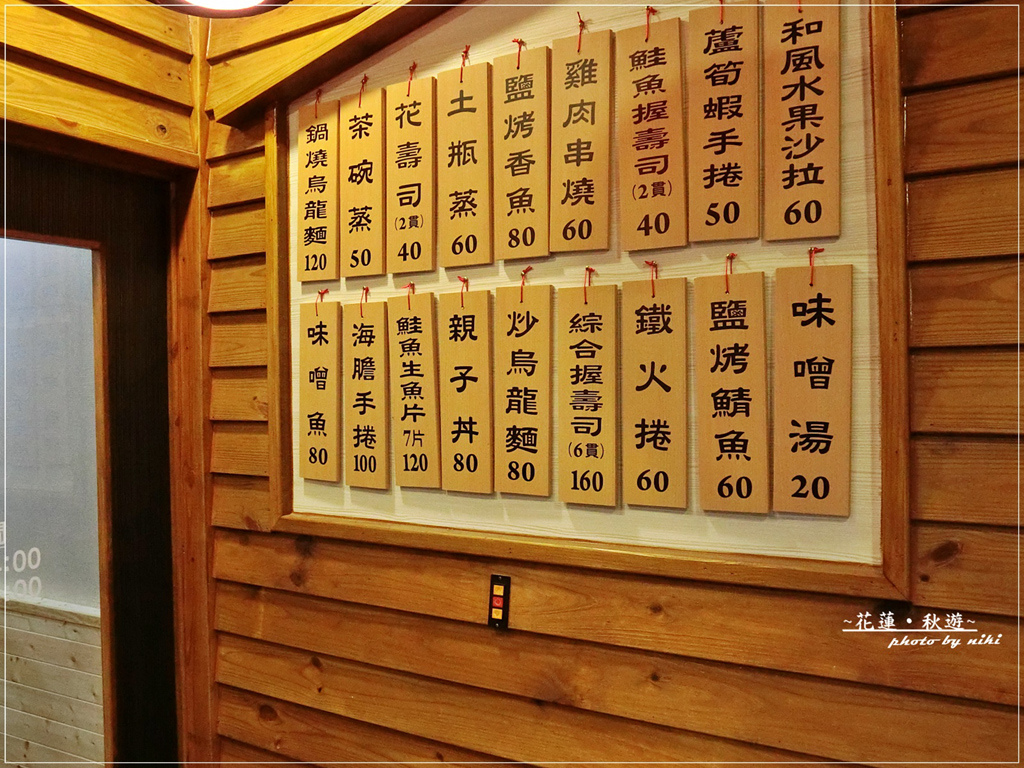 和風水果沙拉 60
蘆筍蝦手捲 50
鮭魚握壽司 (2貫) 40
雞肉串燒 60
鹽烤香魚 80
土瓶蒸 60
花壽司 (2貫) 40
茶碗蒸 50
鍋燒烏龍麵 120
味噌湯 20
鹽烤鯖魚 60
鐵火捲 60
綜合握壽司 (6貫) 160
炒烏龍麵 80
親子丼 80
鮭魚生魚片 7片 120
海膽手捲 100
味噌魚 80
:00
:00
~花蓮・秋遊~
photo by niki